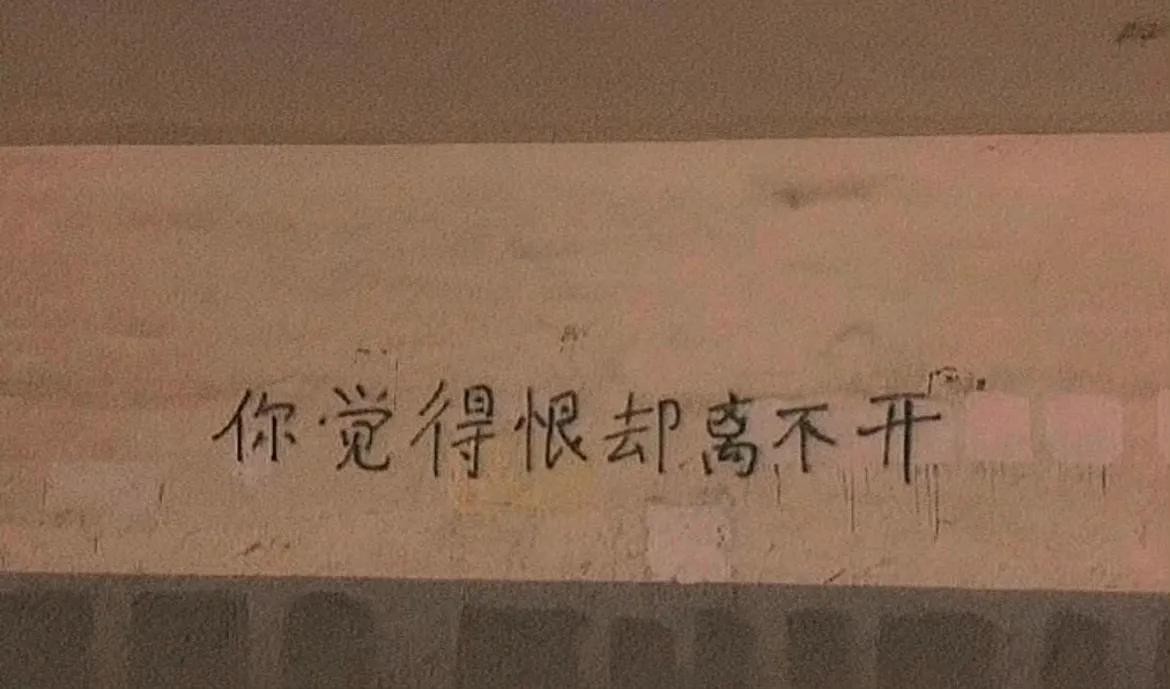 你觉得恨却离不开